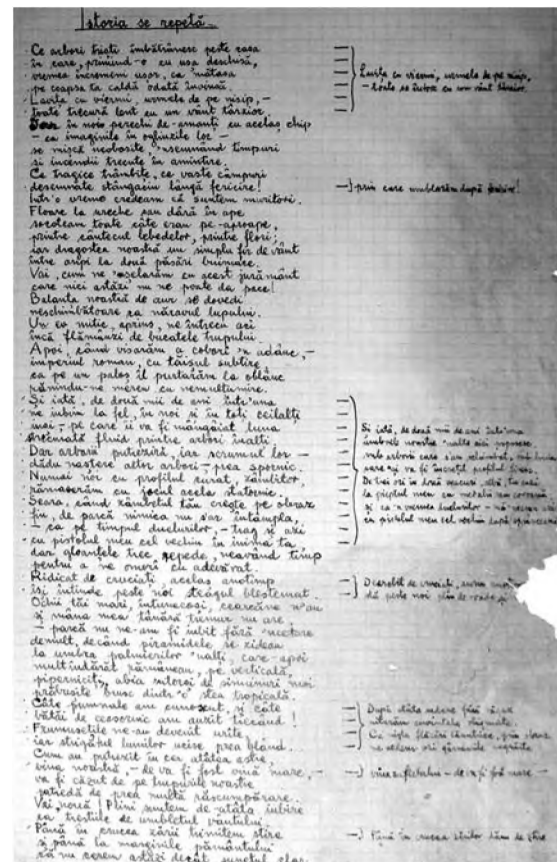 Istoria se repetă
Ce arbori triști îmbătrânesc peste casa
în care, primind-o cu ușa deschisă,
vremea încremeni ușor, ca mătasa
pe coapsa ta caldă odată învinsă.
Lacrita cu viermi, urmele de pe nisip, –
toate trecură lent cu un vânt târzior.
în noi perechi de amanți cu același chip
– ca imaginile în oglinzile lor –
se mișcă neobosite, însemnând timpuri
și incendii trecute în amintire.
Ce tragice trâmbițe, ce vaste câmpuri
desemnate stângaciu lângă fericire!
Într'o vreme credeam că suntem muritori.
Floare la ureche sau dâră în ape
socoteam toate câte erau pe-aproape,
printre cântecul lebedelor, printre flori;
iar dragostea noastră un simplu fir de vânt
între aripi la două păsări buimace.
Vai, cum ne 'nșelarăm cu acest jurământ
care nici astăzi nu ne poate da pace!
Balanța noastră de aur se dovedi
neschimbătoare ca năravul lupului.
Un ev mitic, aprins, ne întrecu aci
încă flămânzi de bucatele trupului.
Apoi, când visarăm a coborî 'n adânc, –
imperiul roman, cu tăișul subțire
ca pe un paloș îl purtarăm la oblânc
rămându-ne mereu cu nemulțumire.
Și iată, de două mii de ani într'una
ne iubim la fel, în noi și în toți ceilalți
mai – pe care îi va fi mângâiat luna
fluid printre arbori înalți
Dar arborii putreziră, iar scrumul lor –
dădu naștere altor arbori – prea spornic.
Numai noi cu profilul curat, zâmbitor,
rămaserăm cu jocul acela statornic.
Seara, când zâmbetul tău crește pe obraz
fin, de parcă nimica nu s'ar întâmpla,
– ca pe timpul duelurilor – trag și azi
cu pistolul meu cel vechiu în inima ta
dar gloanțele trec repede, neavând timp
pentru a ne omorî cu adevărat.
Ridicat de cruciați, același anotimp
își întinde peste noi steagul blestemat.
Ochii tăi mari, întunecoși, cearcăne n'au
și mâna mea tânără tremur nu are;
– parcă nu ne-am fi iubit fără 'ncetare
demult, decând piramidele se zideau
la umbra palmierilor 'nalți, care-apoi
mult îndărăt rămâneau, pe verticală,
abia
prăbușite brusc dintr'o stea tropicală.
Câte fumnale am cunoscut, și câte
bătăi de ceasornic am auzit țierând!
Frumusețile ne-au devenit urîte,
iar strigătul lumilor ucise prea blând.
Cum au putrezit în cer atâtea astre,
vina noastră, – de va fi fost vină mare, –
va fi căzut de pe trupurile noastre
de prea multă răscumpărare.
Vai, nouă! Plini suntem de-atâta iubire
ca trestiile de umbletul vântului.
Până în crucea zării trimitem știre
și până la marginile pământului
că nu cerem astăzi decât sunetul clar
Lacrita cu viermi, urmele de pe nisip,
– toate se întorc cu un vânt târzior.
prin care umblarăm după fericire!
Și iată, de două mii de ani într'una
umbrele noastre 'nalte
sub arborii care
care-ți va fi profilul
De trei ori în două veacuri
la pieptul meu
și ca 'n vremea duelurilor –
cu pistolul meu cel vechiu
de cruciați,
peste noi
După atâta
cuvintele
Ca niște flăcări
– de va fi fost mare –
Până în crucea zărilor dăm de știre